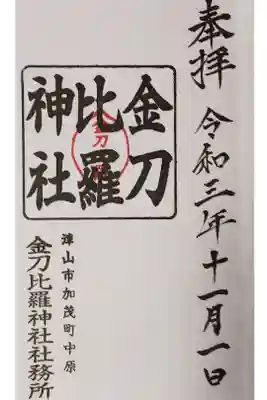 奉拝
令和三年十一月一日
金刀
比羅
神社
金刀
津山市加茂町中原
金刀比羅神社社務所